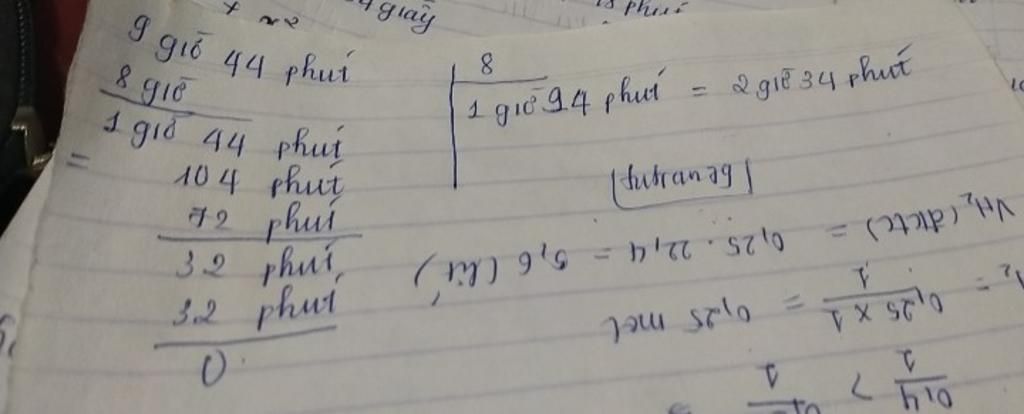 giây
phút
9 giờ 44 phút
8 giờ
1 giờ 44 phút
= 104 phút
72 phút
32 phút
32 phút
0
8
1 giờ 94 phút = 2 giờ 34 phút
VH₂(đktc) = 0,25 . 22,4 = 5,6 (lít)
= 0,25 x 1 / 1 = 0,25 mol
0,4 / 1 >